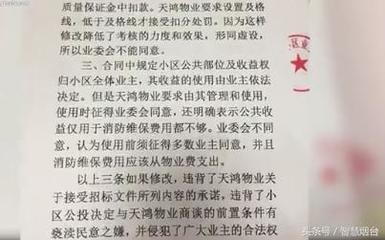 质量保证金中扣款。天鸿物业要求设及格
线，低于及格线才接受扣分处罚。因为这样
修改降低了考核的力度和效果，形同虚设，
所以业委会不能同意。
三、合同中规定小区公共部位及收益权
归小区全体业主，其收益的使用由业主依法
决定。但是天鸿物业要求由其管理和使用，
使用时征得业委会同意，还明确表示公共收
益仅用于消防维保费用都不够。业委会不同
意，认为使用前须征得多数业主同意，并且
消防维保费用应该从物业费支出。
以上三条如果修改，违背了天鸿物业关
于接受招标文件所列内容的承诺，违背了小
区公投决定与天鸿物业商谈的前置条件有
亵渎民意之嫌，并侵犯了广大业主的合法权
头条号 / 智慧烟台